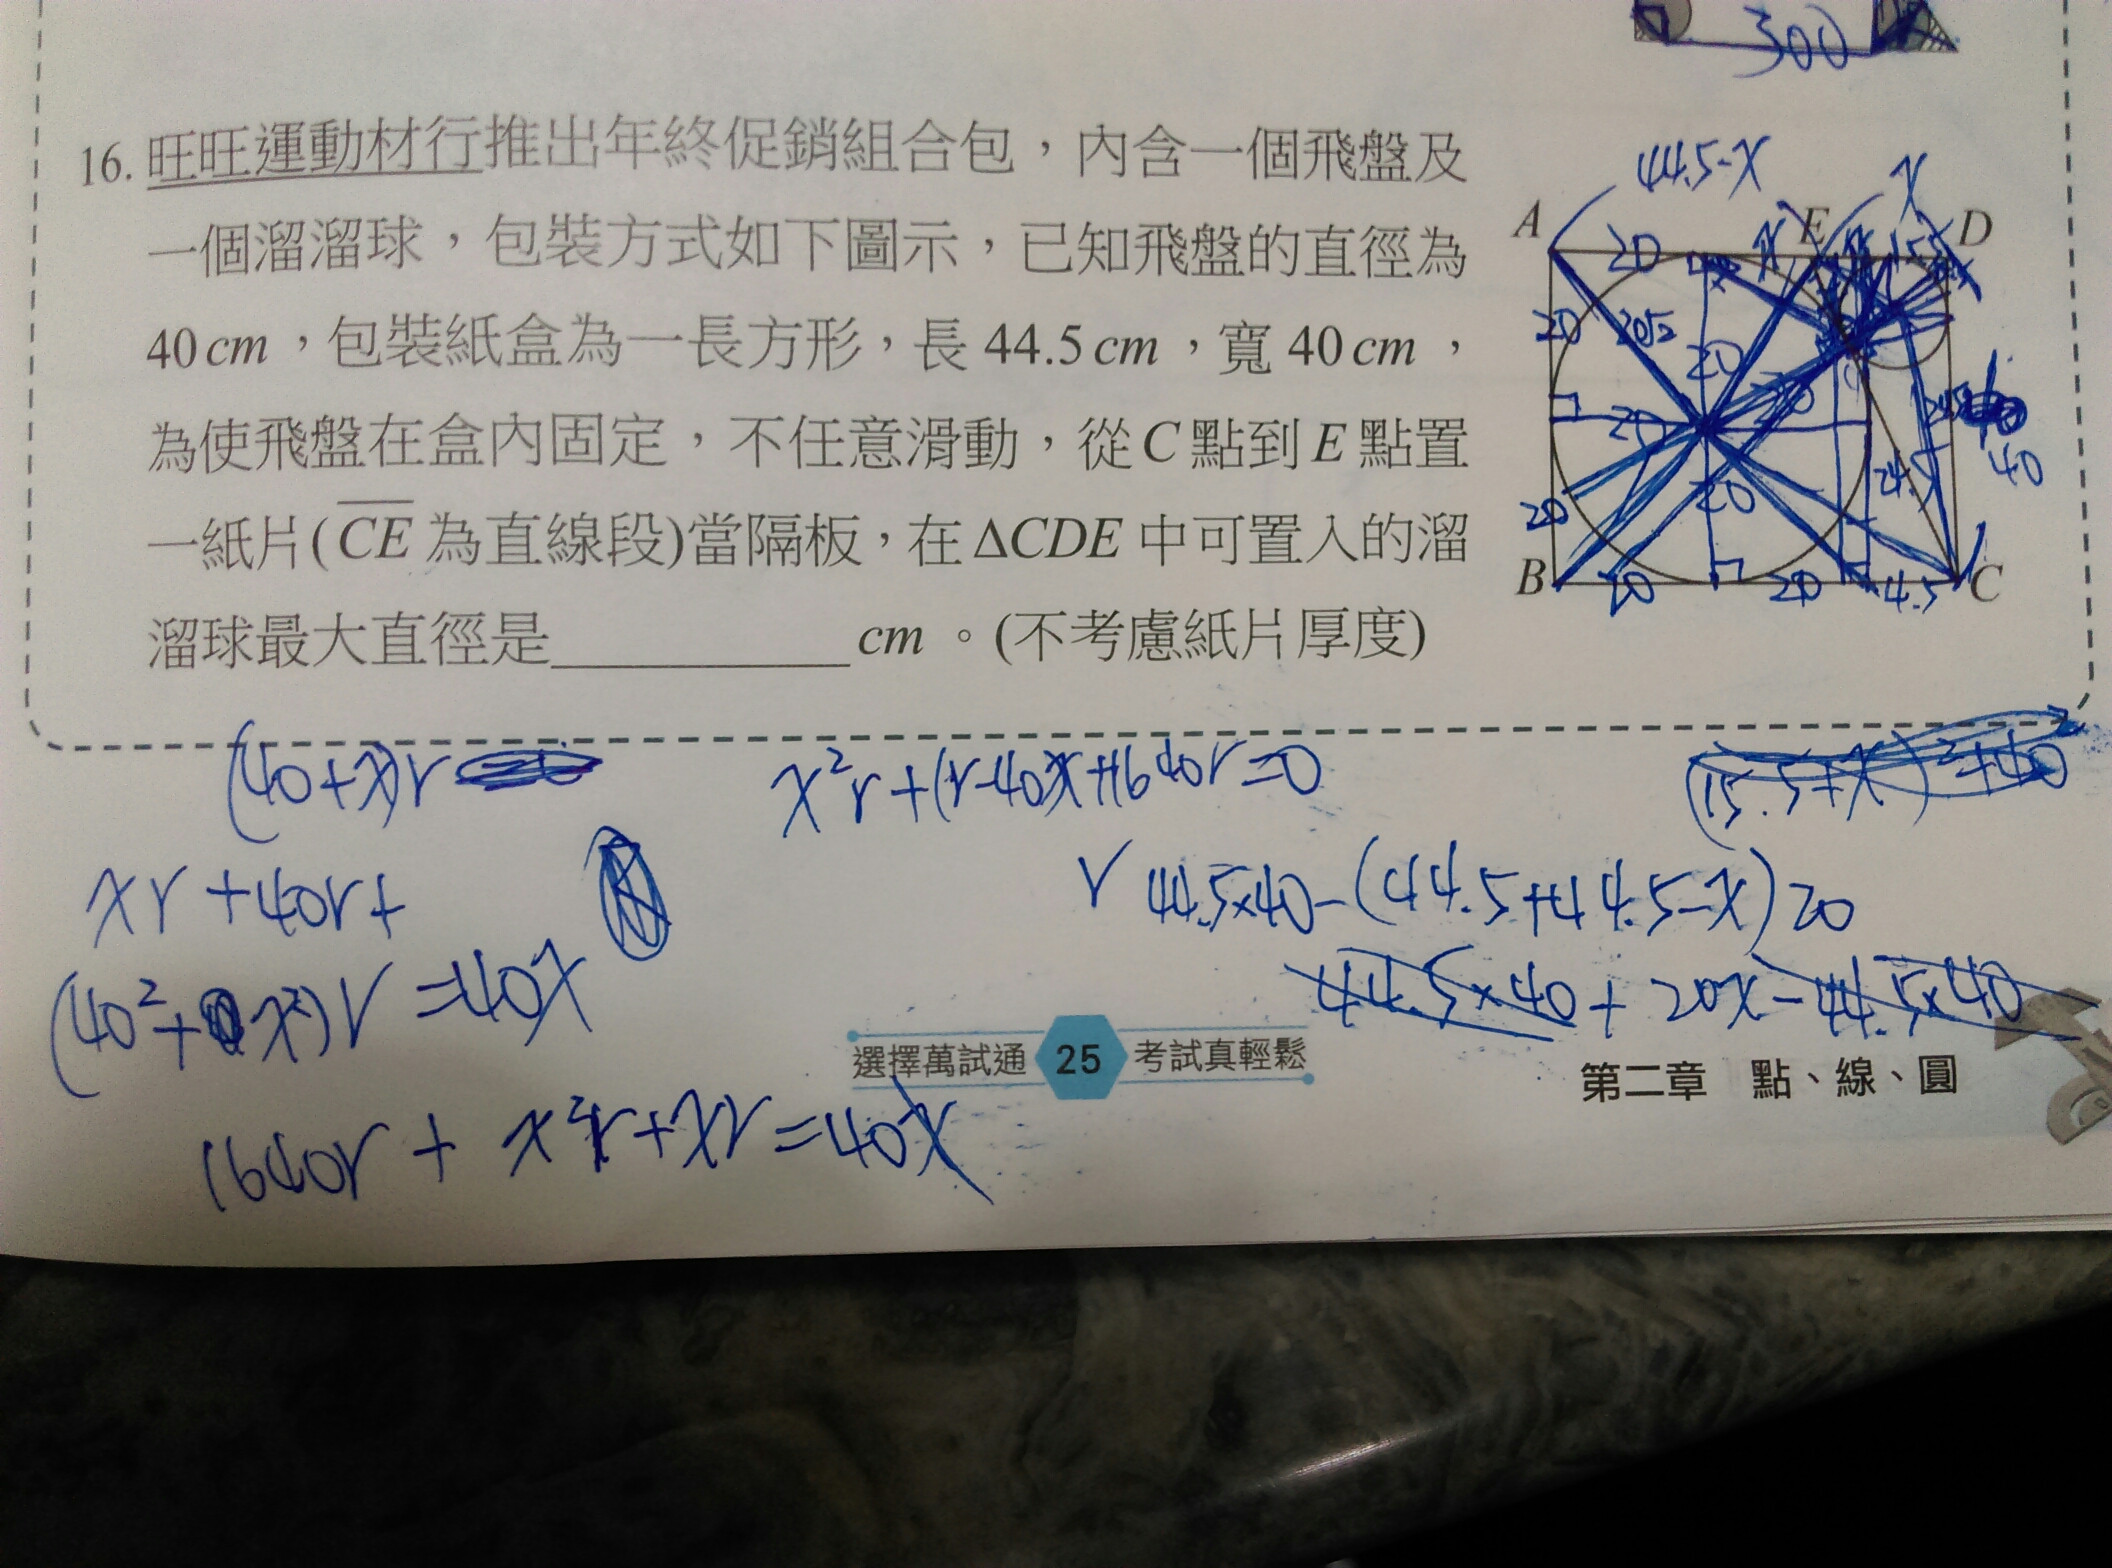 300
16. 旺旺運動材行推出年終促銷組合包，內含一個飛盤及
一個溜溜球，包裝方式如下圖示，已知飛盤的直徑為
40cm，包裝紙盒為一長方形，長44.5cm，寬40cm，
為使飛盤在盒內固定，不任意滑動，從C點到E點置
一紙片(CE為直線段)當隔板，在ΔCDE中可置入的溜
溜球最大直徑是__________cm。(不考慮紙片厚度)
44.5-x x
A E D
20
20 20√2 20
20 40
20 20
B 20 20 4.5 C
(40+x)r
x²r+(r-40)x+1640r=0
xr+40r+
44.5×40-(44.5+44.5-x)20
(40²+x²)r=40x
44.5×40+20x-44.5×40
選擇萬試通 25 考試真輕鬆
第二章 點、線、圓